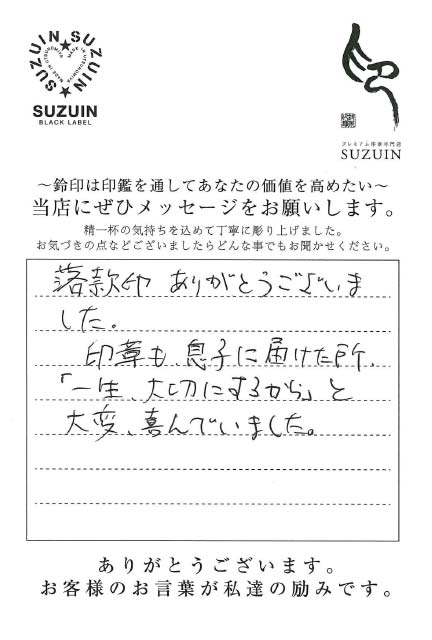 SUZUIN SUZUIN SUZUIN
MADE IN UTSUNOMIYA
SUZUIN
BLACK LABEL
プレミアム印章専門店
SUZUIN
～鈴印は印鑑を通してあなたの価値を高めたい～
当店にぜひメッセージをお願いします。
精一杯の気持ちを込めて丁寧に彫り上げました。
お気づきの点などございましたらどんな事でもお聞かせください。
落款印 ありがとうございま
した。
印章も、息子に届けた所、
「一生、大切にするから」と
大変、喜んでいました。
ありがとうございます。
お客様のお言葉が私達の励みです。